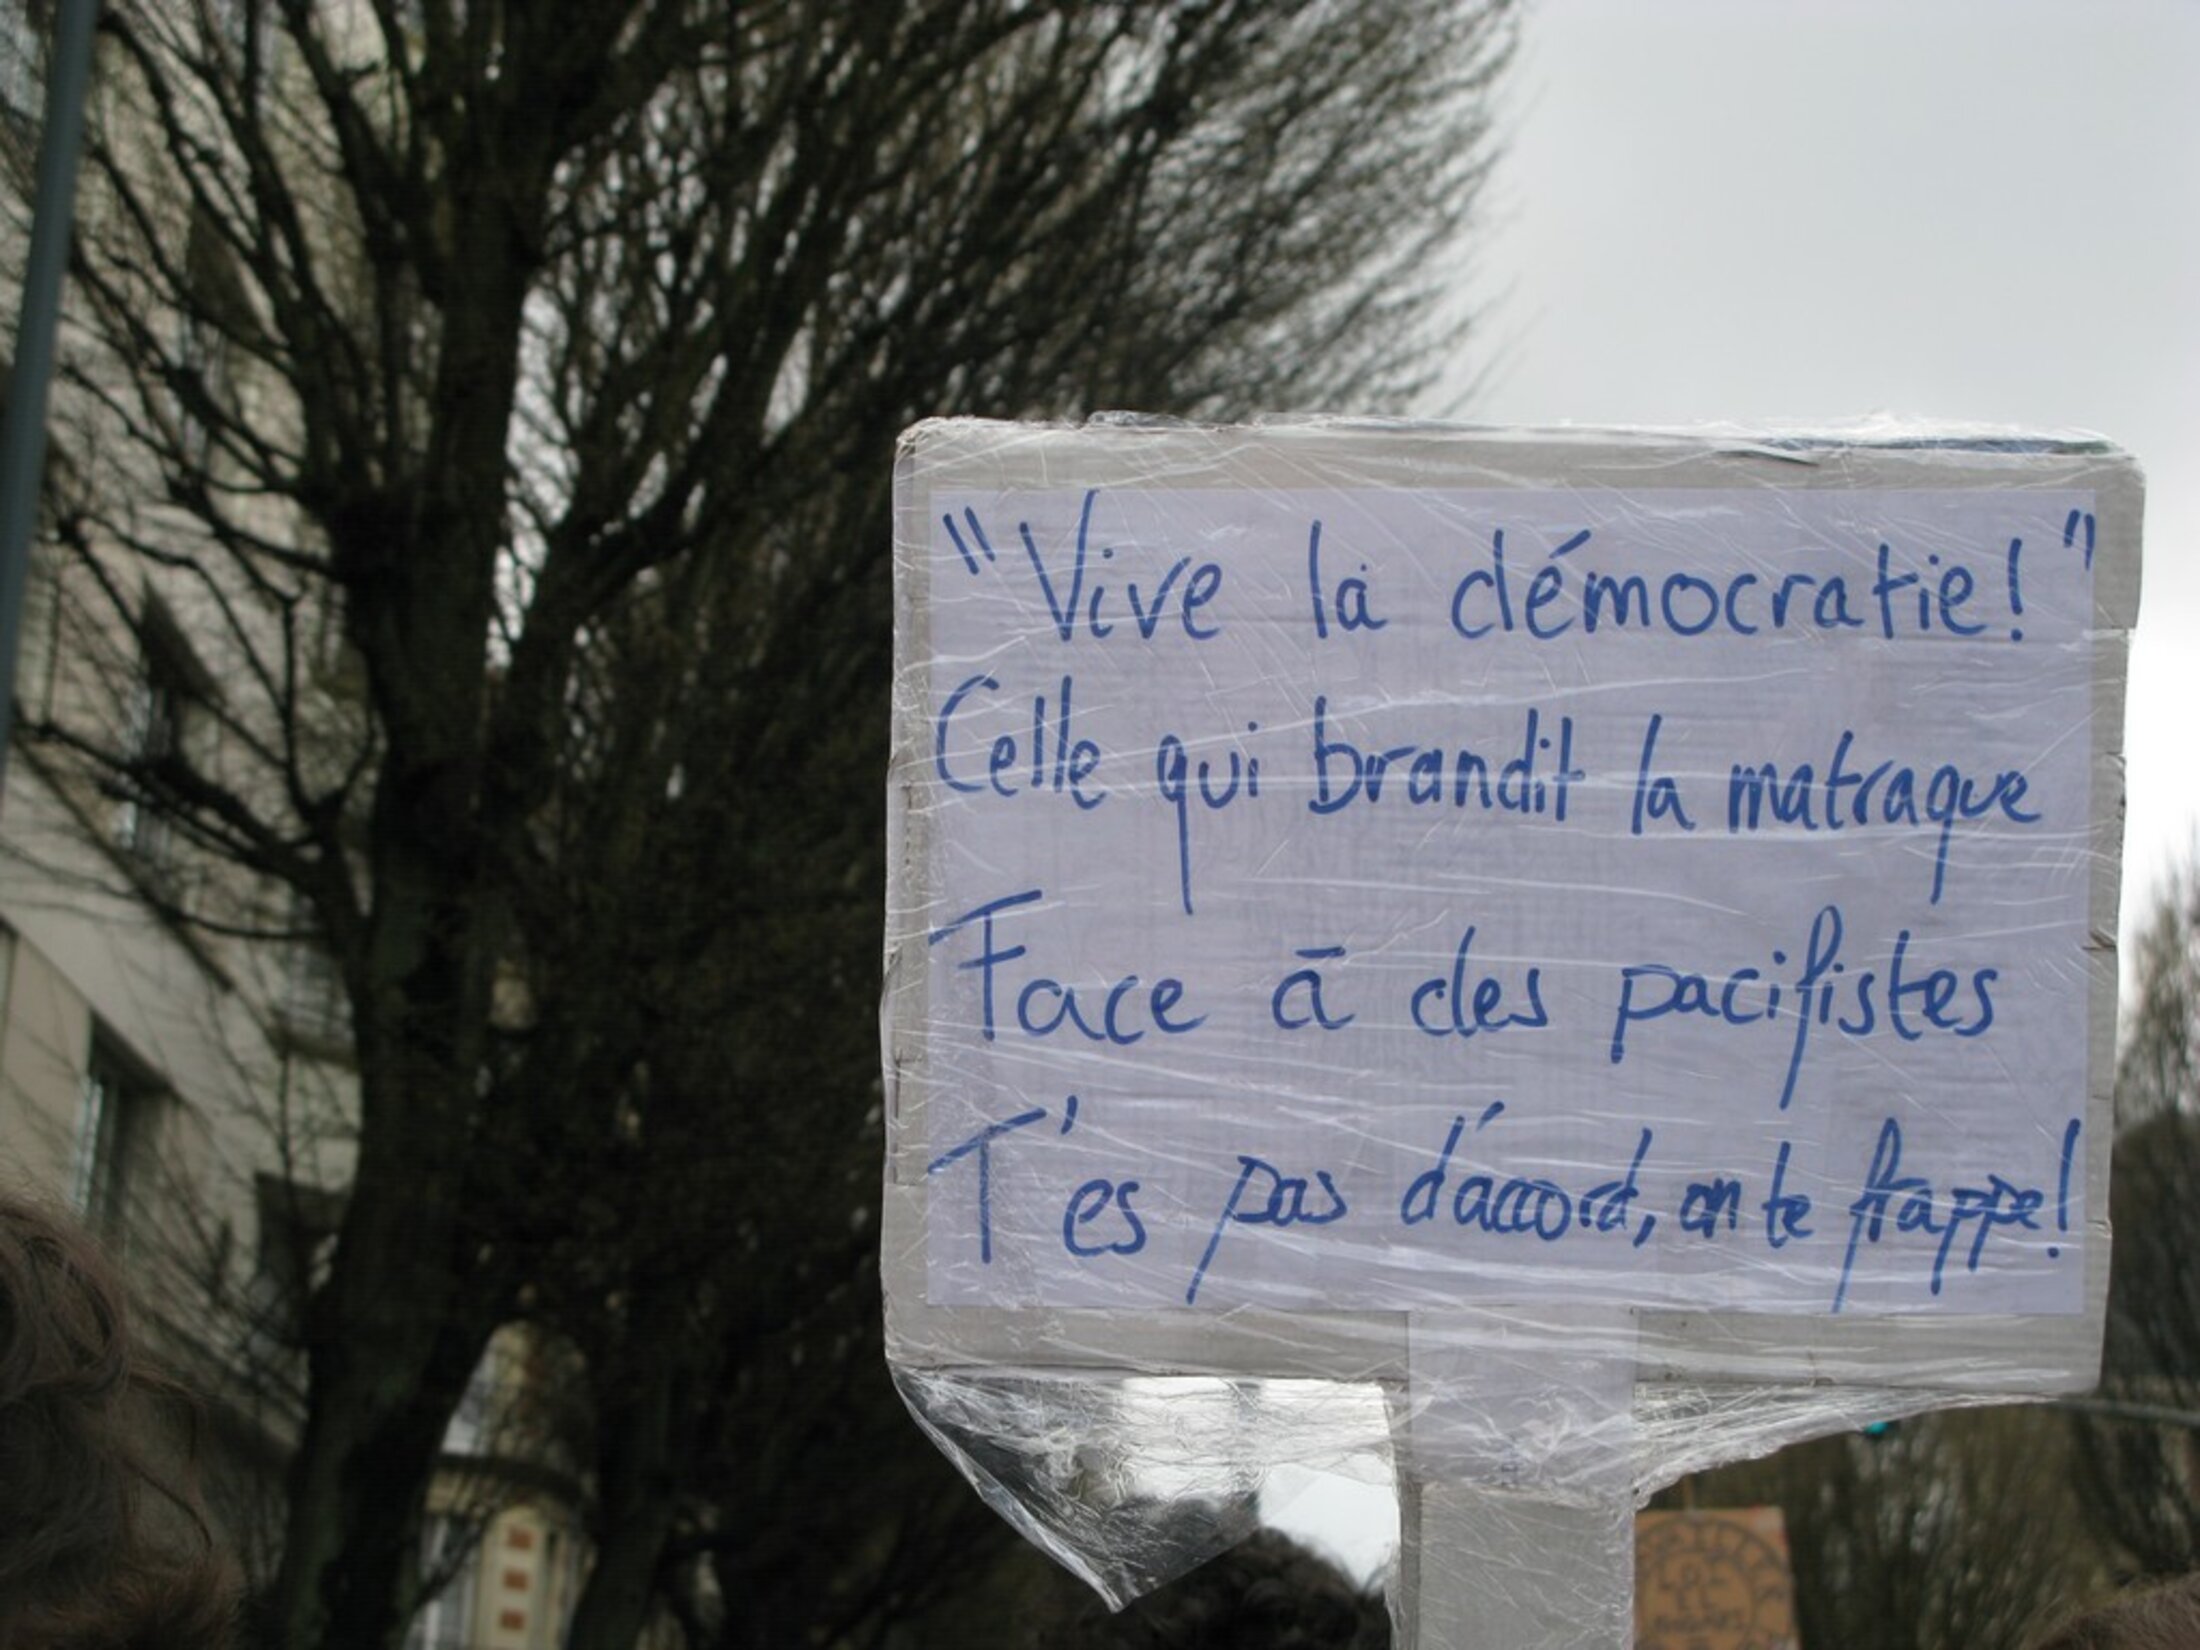 "Vive la démocratie!"
Celle qui brandit la matraque
Face à des pacifistes
T'es pas d'accord, on te frappe!